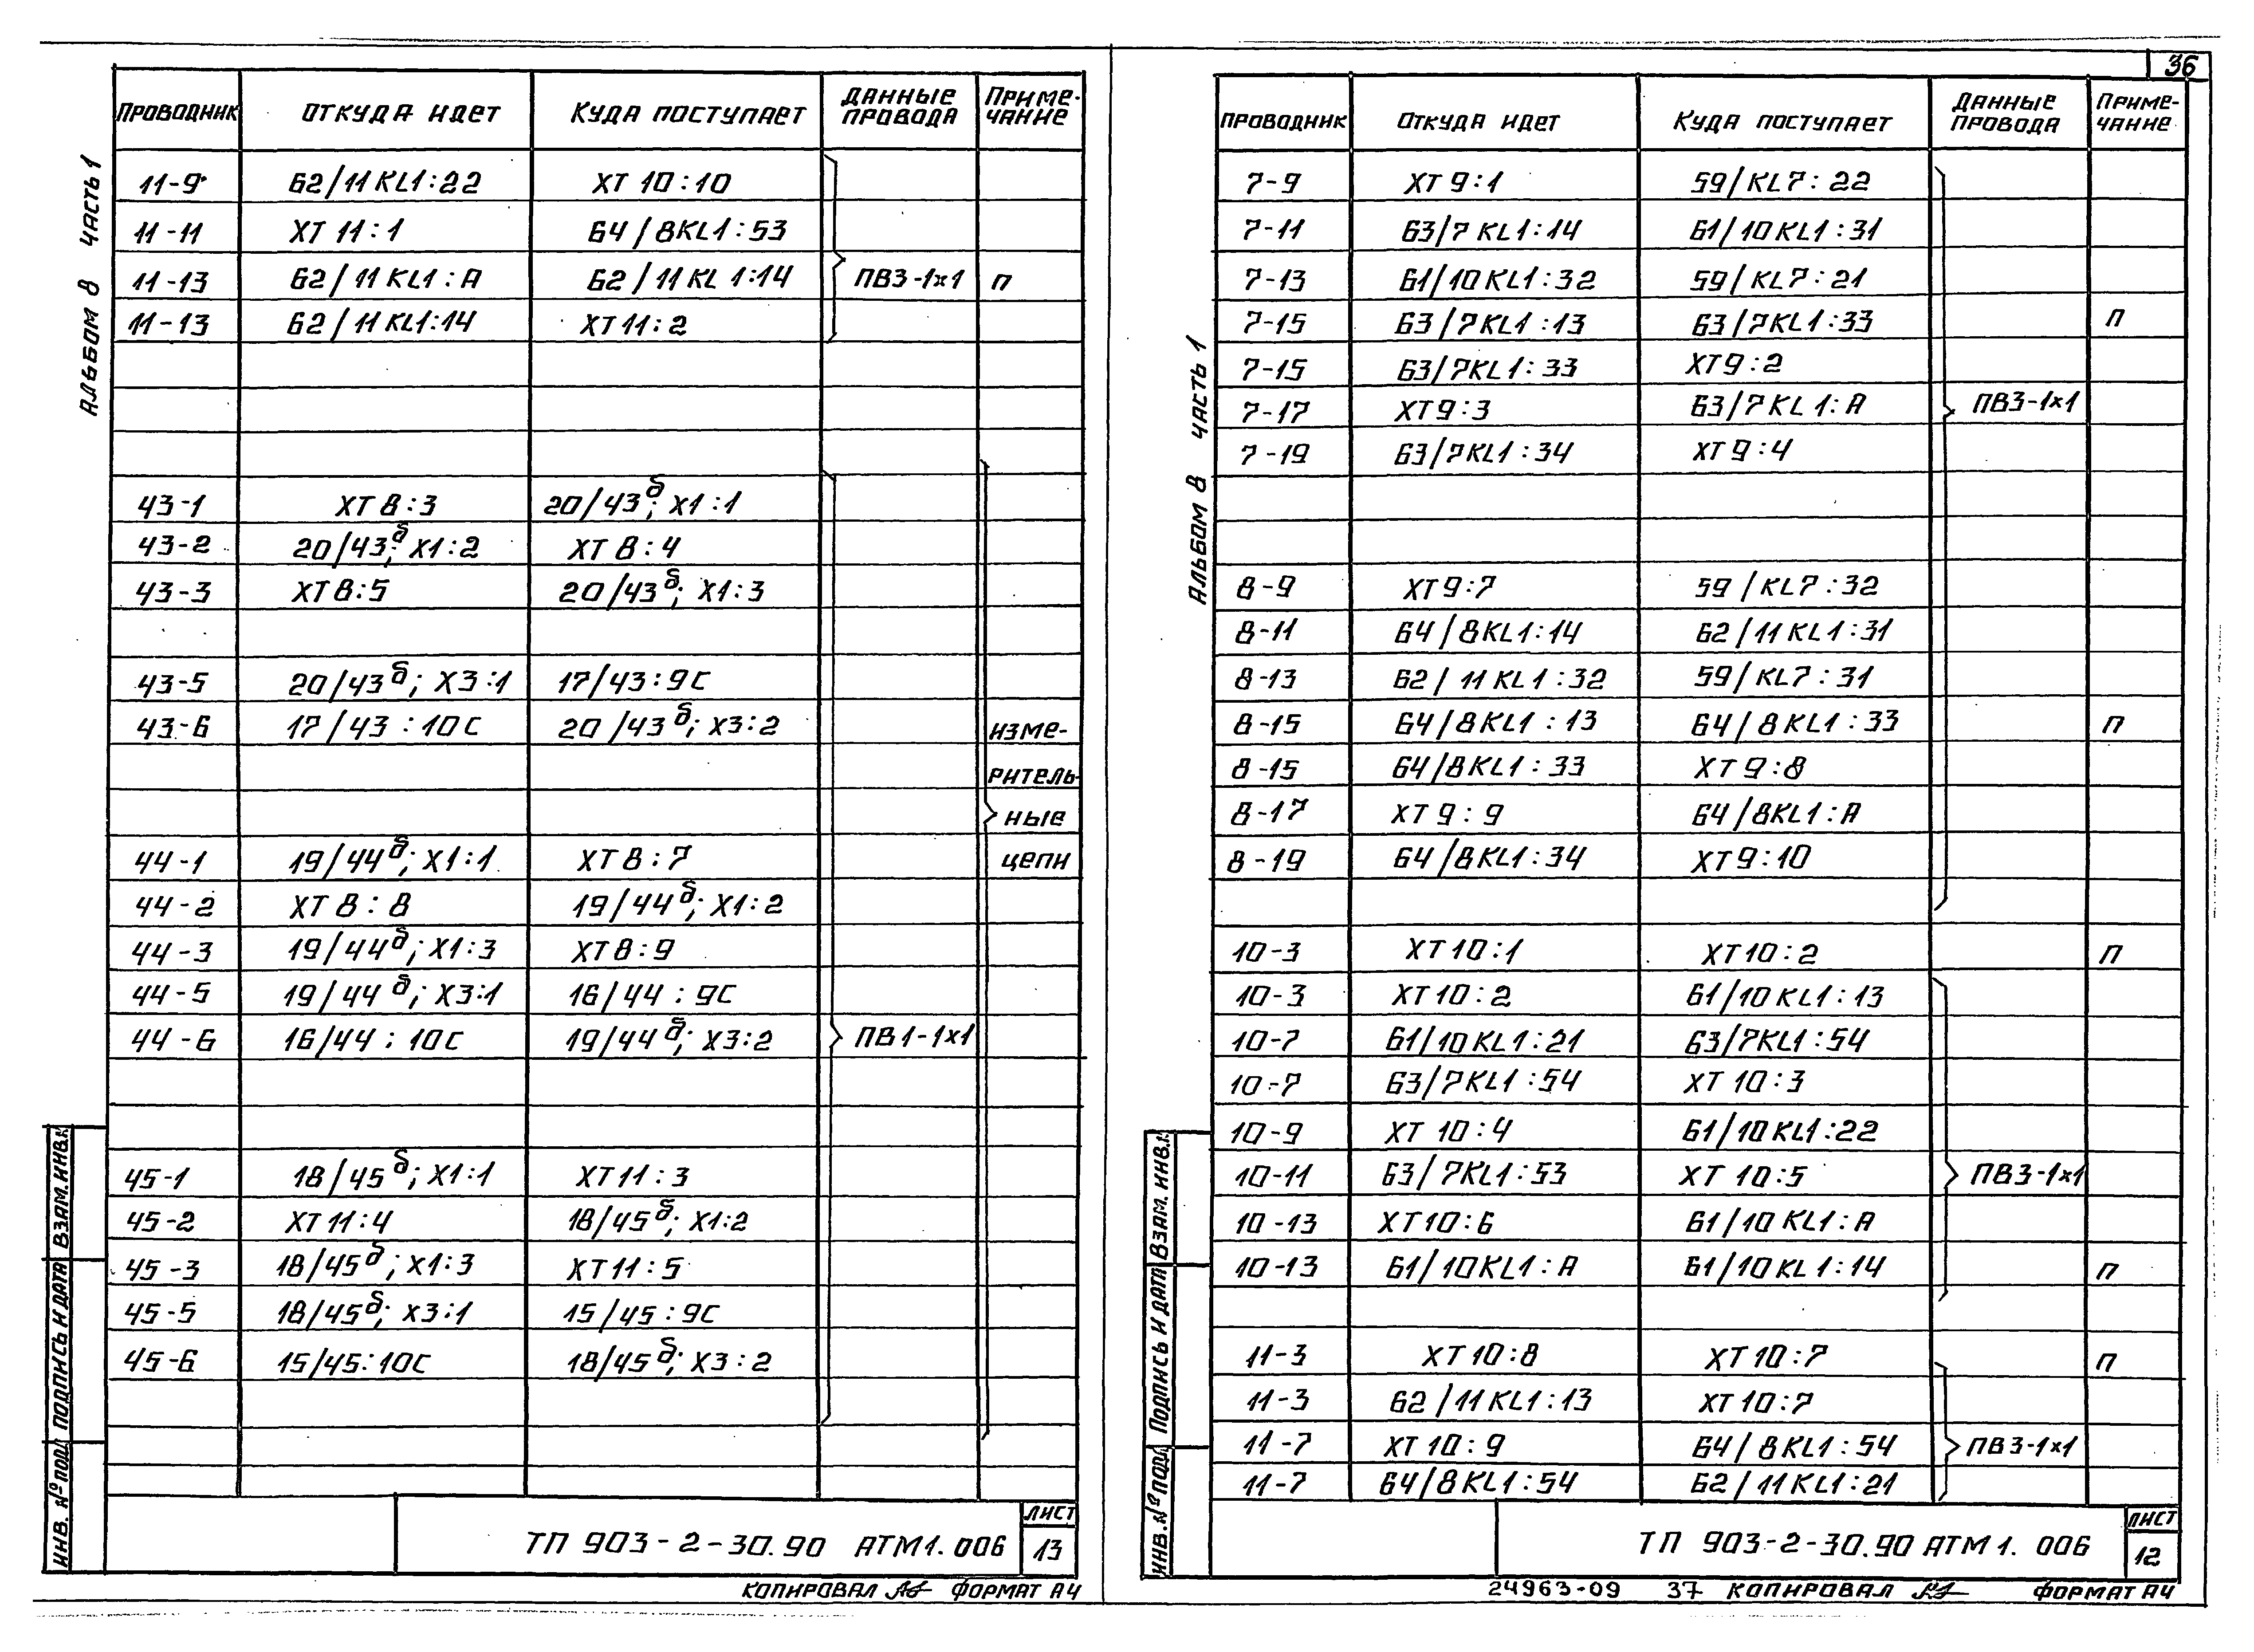 Альбом 8 часть 1
Проводник Откуда идет Куда поступает Данные провода Приме-чание
11-9 62/11KL1:22 XT 10:10
11-11 XT 11:1 64/8KL1:53
11-13 62/11KL1:А 62/11KL1:14 ПВ3-1х1 п
11-13 62/11KL1:14 XT11:2
43-1 XT 8:3 20/43б; X1:1
43-2 20/43б; X1:2 XT 8:4
43-3 XT8:5 20/43б; X1:3
43-5 20/43б; X3:1 17/43:9С
43-6 17/43:10С 20/43б; X3:2 измe-
ритель-
ные
44-1 19/44б; X1:1 XT8:7 цепи
44-2 XT 8:8 19/44б; X1:2
44-3 19/44б; X1:3 XT8:9
44-5 19/44б; X3:1 16/44:9С
44-6 16/44:10С 19/44б; X3:2 ПВ1-1х1
45-1 18/45б; X1:1 XT11:3
45-2 XT11:4 18/45б; X1:2
45-3 18/45б; X1:3 XT11:5
45-5 18/45б; X3:1 15/45:9С
45-6 15/45:10С 18/45б; X3:2
Инв. № подл Подпись и дата Взам. инв. №
ТП 903-2-30.90 АТМ1.006
Лист
13
Копировал Формат А4
36
Альбом 8 часть 1
Проводник Откуда идет Куда поступает Данные провода Приме-чание
7-9 XT 9:1 59/KL7:22
7-11 63/7KL1:14 61/10KL1:31
7-13 61/10KL1:32 59/KL7:21
7-15 63/7KL1:13 63/7KL1:33 п
7-15 63/7KL1:33 XT9:2
7-17 XT9:3 63/7KL1:А ПВ3-1х1
7-19 63/7KL1:34 XT9:4
8-9 XT9:7 59/KL7:32
8-11 64/8KL1:14 62/11KL1:31
8-13 62/11KL1:32 59/KL7:31
8-15 64/8KL1:13 64/8KL1:33 п
8-15 64/8KL1:33 XT9:8
8-17 XT9:9 64/8KL1:А
8-19 64/8KL1:34 XT9:10
10-3 XT10:1 XT10:2 п
10-3 XT10:2 61/10KL1:13
10-7 61/10KL1:21 63/7KL1:54
10-7 63/7KL1:54 XT 10:3
10-9 XT 10:4 61/10KL1:22
10-11 63/7KL1:53 XT 10:5 ПВ3-1х1
10-13 XT10:6 61/10KL1:А
10-13 61/10KL1:А 61/10KL1:14 п
11-3 XT10:8 XT10:7 п
11-3 62/11KL1:13 XT10:7
11-7 XT10:9 64/8KL1:54 ПВ3-1х1
11-7 64/8KL1:54 62/11KL1:21
Инв. № подл Подпись и дата Взам. инв. №
ТП 903-2-30.90 АТМ1.006
Лист
12
24963-09 37 Копировал Формат А4